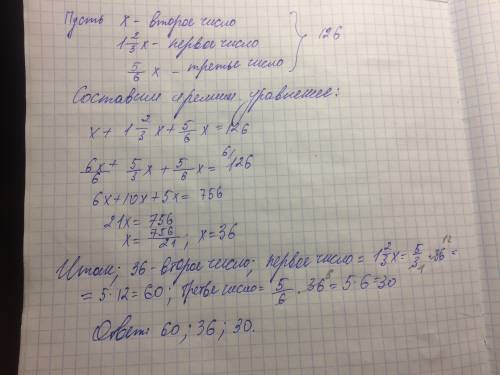 Пусть x - второе число
1 2/3 x - первое число } 126
5/6 x - третье число
Составим уравнение:
x + 1 2/3 x + 5/6 x = 126
6x/6 + 5/3 x + 5/6 x = 6/ 126
6x+10x+5x = 756
21x = 756
x = 756/21 ; x = 36
Итак; 36 - второе число; первое число = 1 2/3 x = 5/3 1 · 36 12 =
= 5·12 = 60; третье число = 5/6 · 36 6 = 5·6 = 30
Ответ: 60; 36; 30.